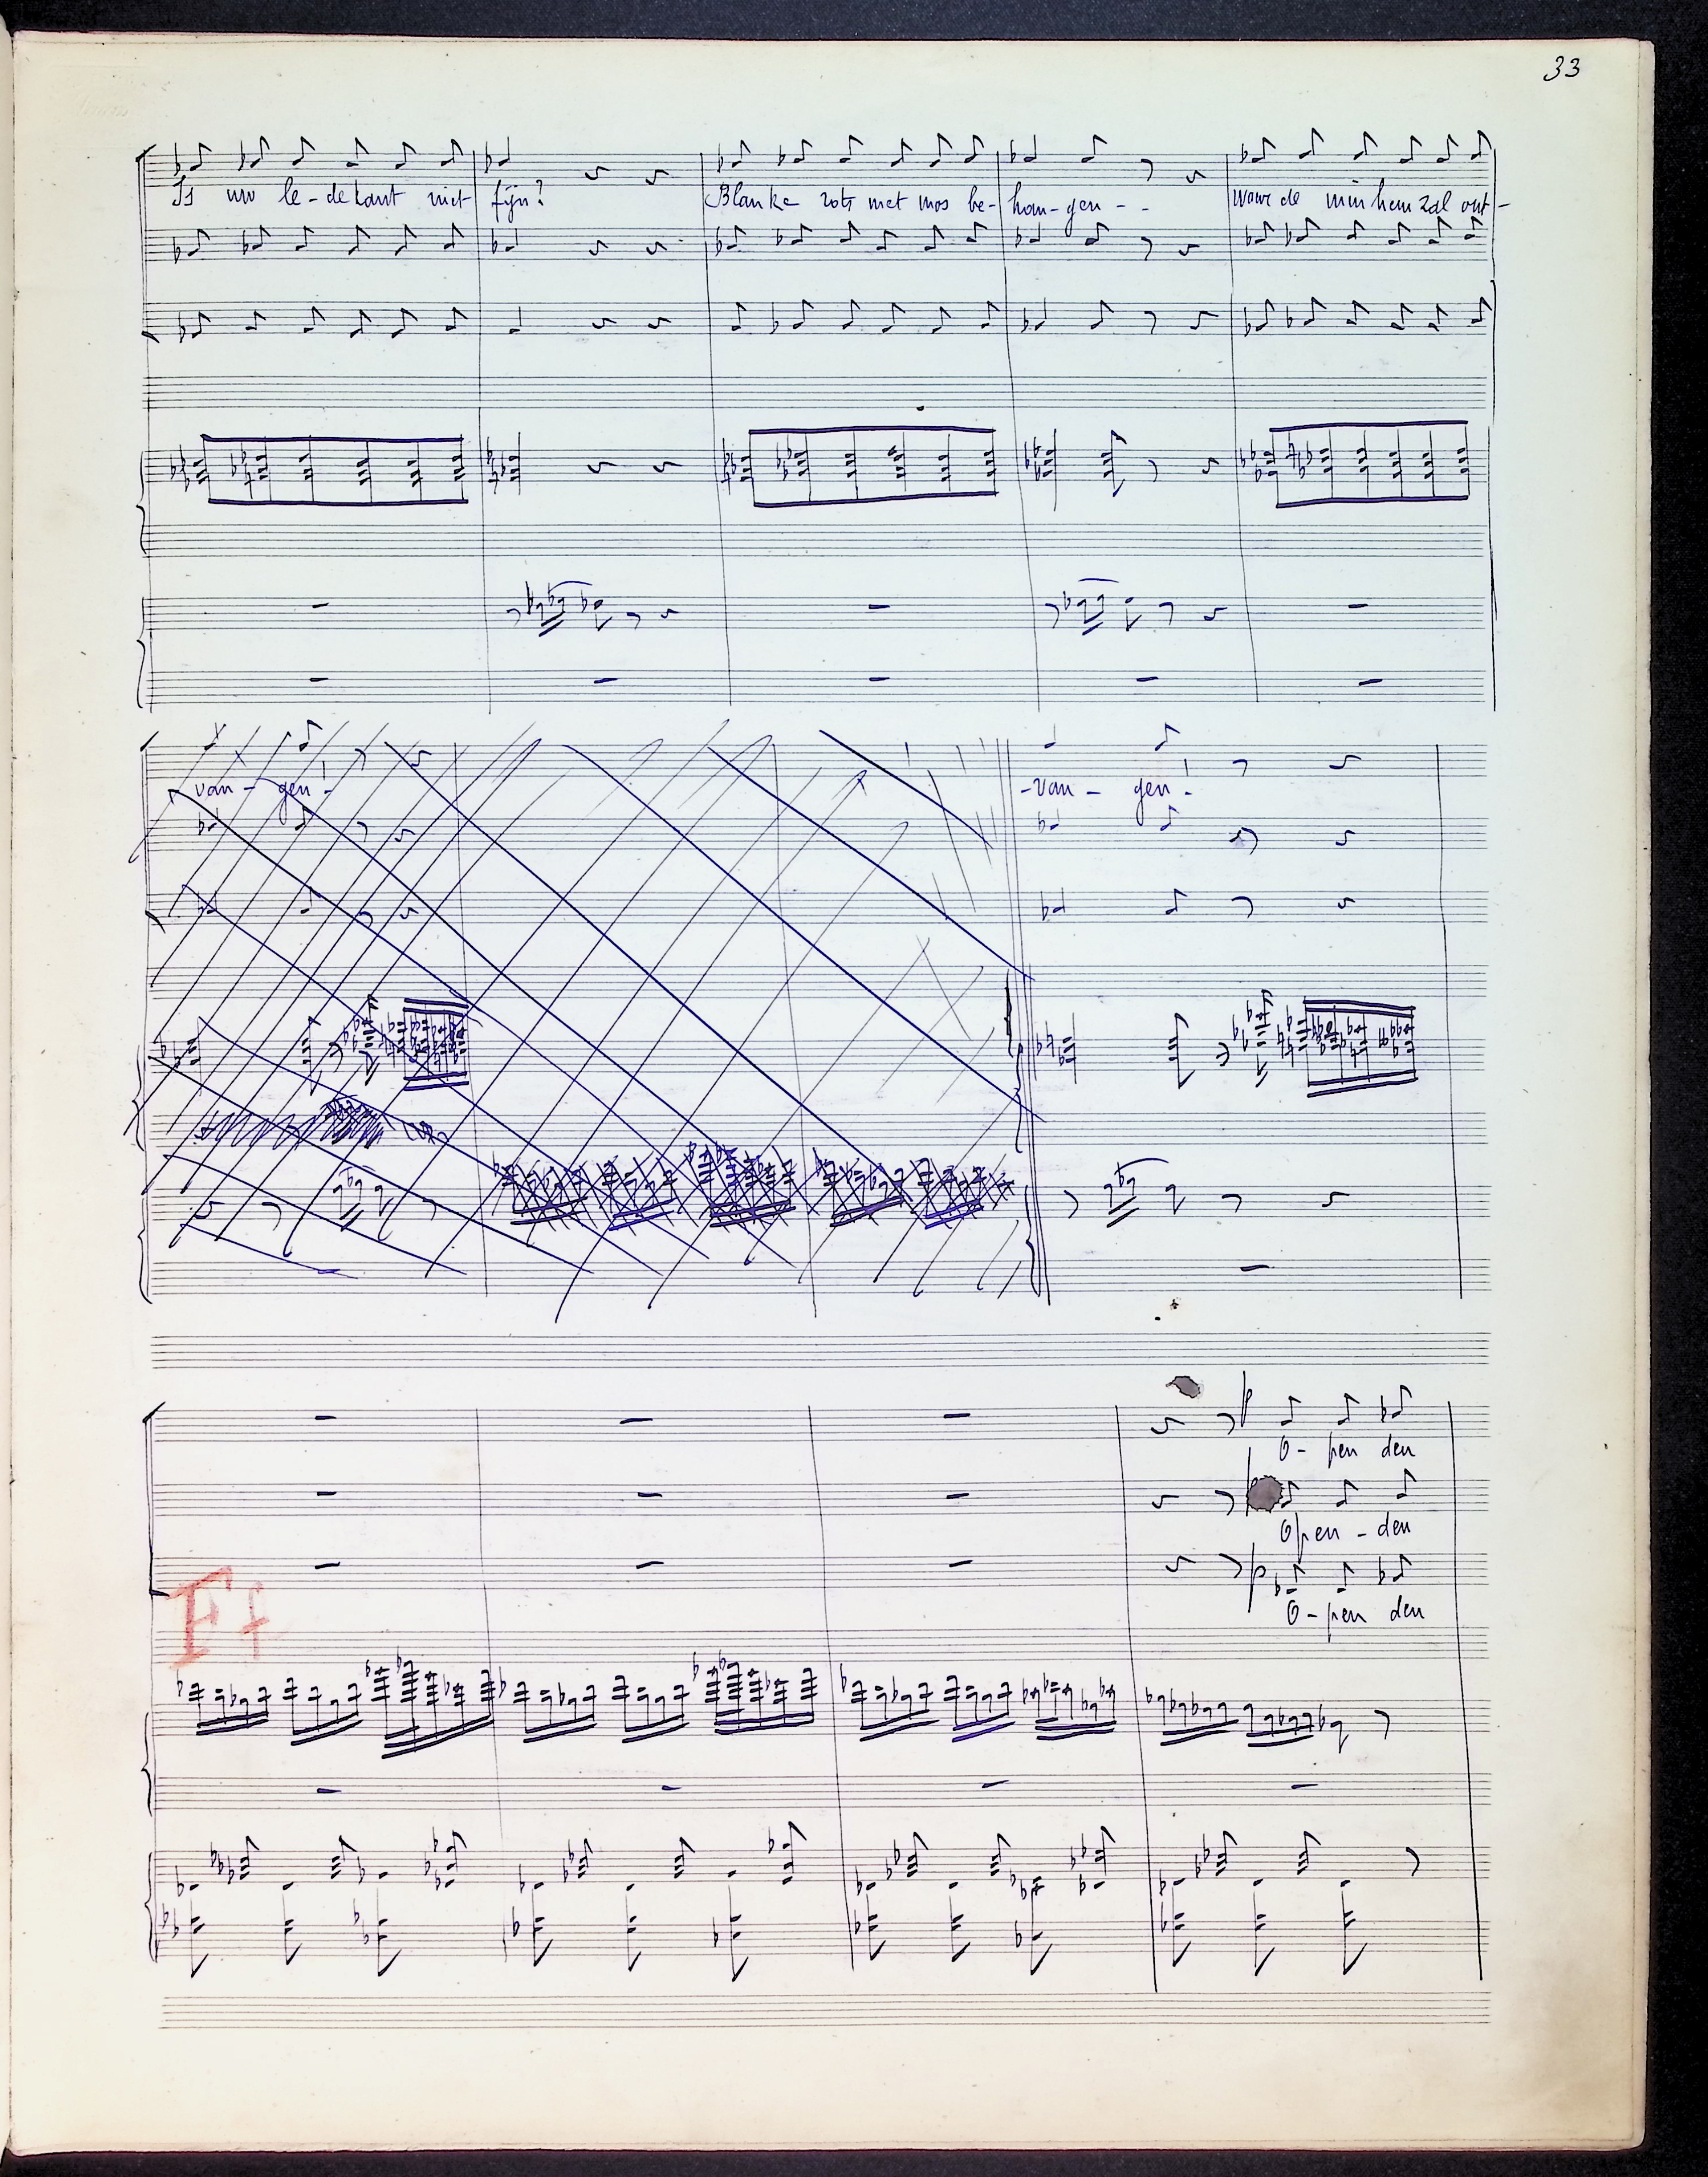 33
Is uw le-dekant niet fijn? Blanke rots met mos be-han-gen-- waar de min hem zal ont-
van-gen!- -van-gen!-
p
O-pen den
Open-den
p
O-pen den
Ff